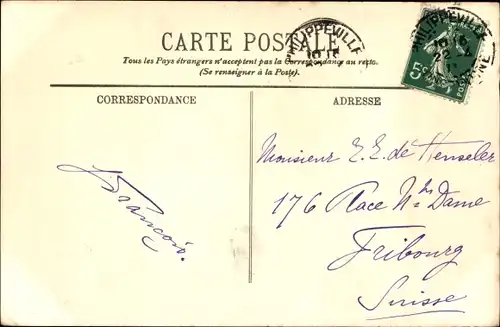 CARTE POSTALE
Tous les Pays étrangers n'acceptent pas la Correspondance au recto.
(Se renseigner à la Poste).
PHILIPPEVILLE
PHILIPPEVILLE
5c
CORRESPONDANCE
ADRESSE
J. François.
Monsieur E. E. de Henseler
176 Place N. Dame
Fribourg
Suisse